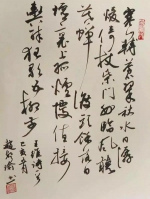 寒山轉蒼翠秋水日潺
湲倚杖柴門外臨風聽
暮蟬渡頭餘落日
墟里上孤煙復值接
輿醉狂歌五柳前
王維詩
己亥